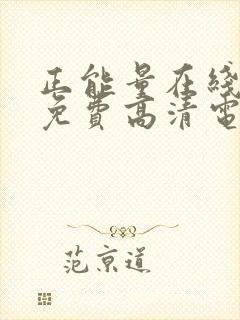 正能量在綫
免費高清電
范京道